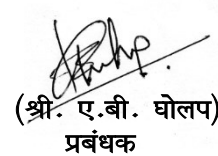 (श्री. ए.बी. घोलप)
प्रबंधक